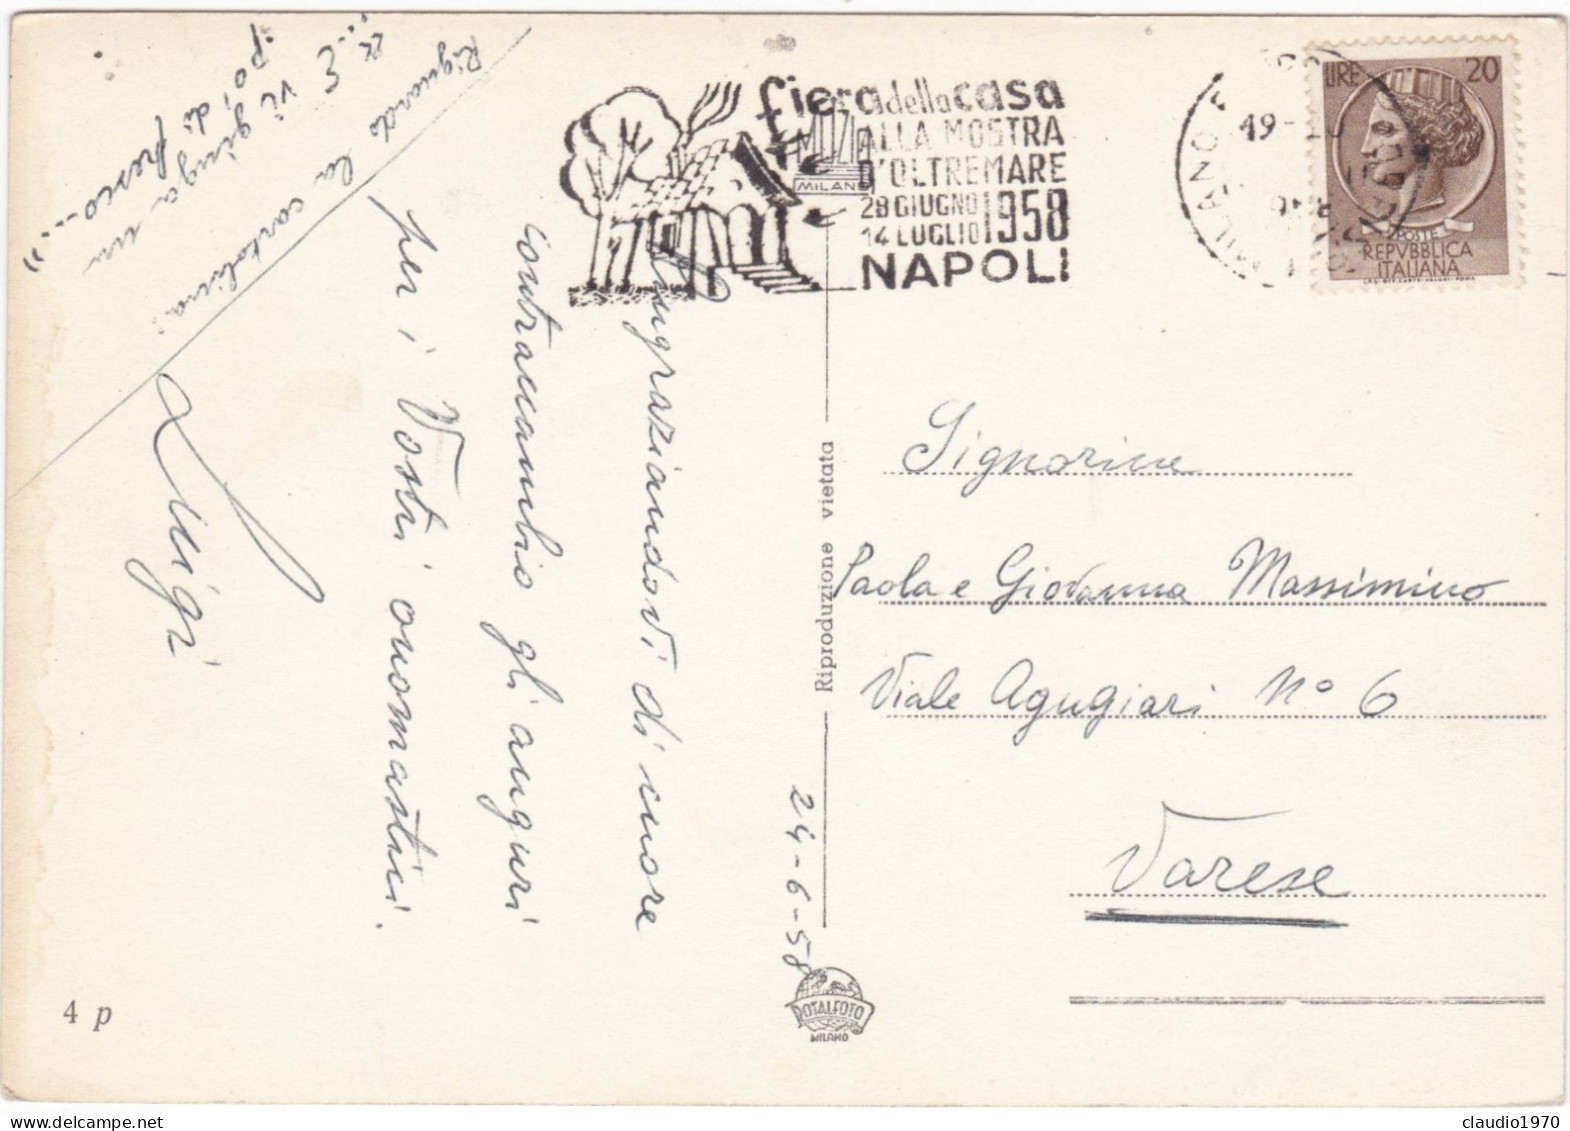 Riguardo la cartolina:
"...E vi giunga un
po' di fresco..."
Ringraziandovi di cuore
contraccambio gli auguri
per i Vostri onomastici.
Luigi
24-6-58
4 p
fiera della casa
ALLA MOSTRA
D'OLTREMARE
28 GIUGNO
14 LUGLIO 1958
NAPOLI
MILANO
MILANO
49-
LIRE 20
POSTE
REPVBBLICA
ITALIANA
Riproduzione vietata
Signorine
Paola e Giovanna Massimino
Viale Aguggiari N° 6
Varese
ROTALFOTO
MILANO
claudio1970